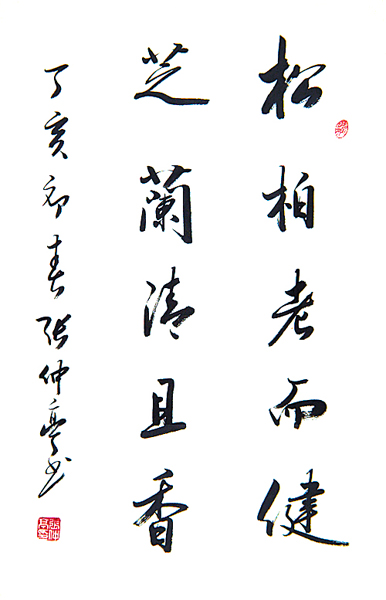 松柏老而健
芝蘭清且香
丁亥初春張仲亭书